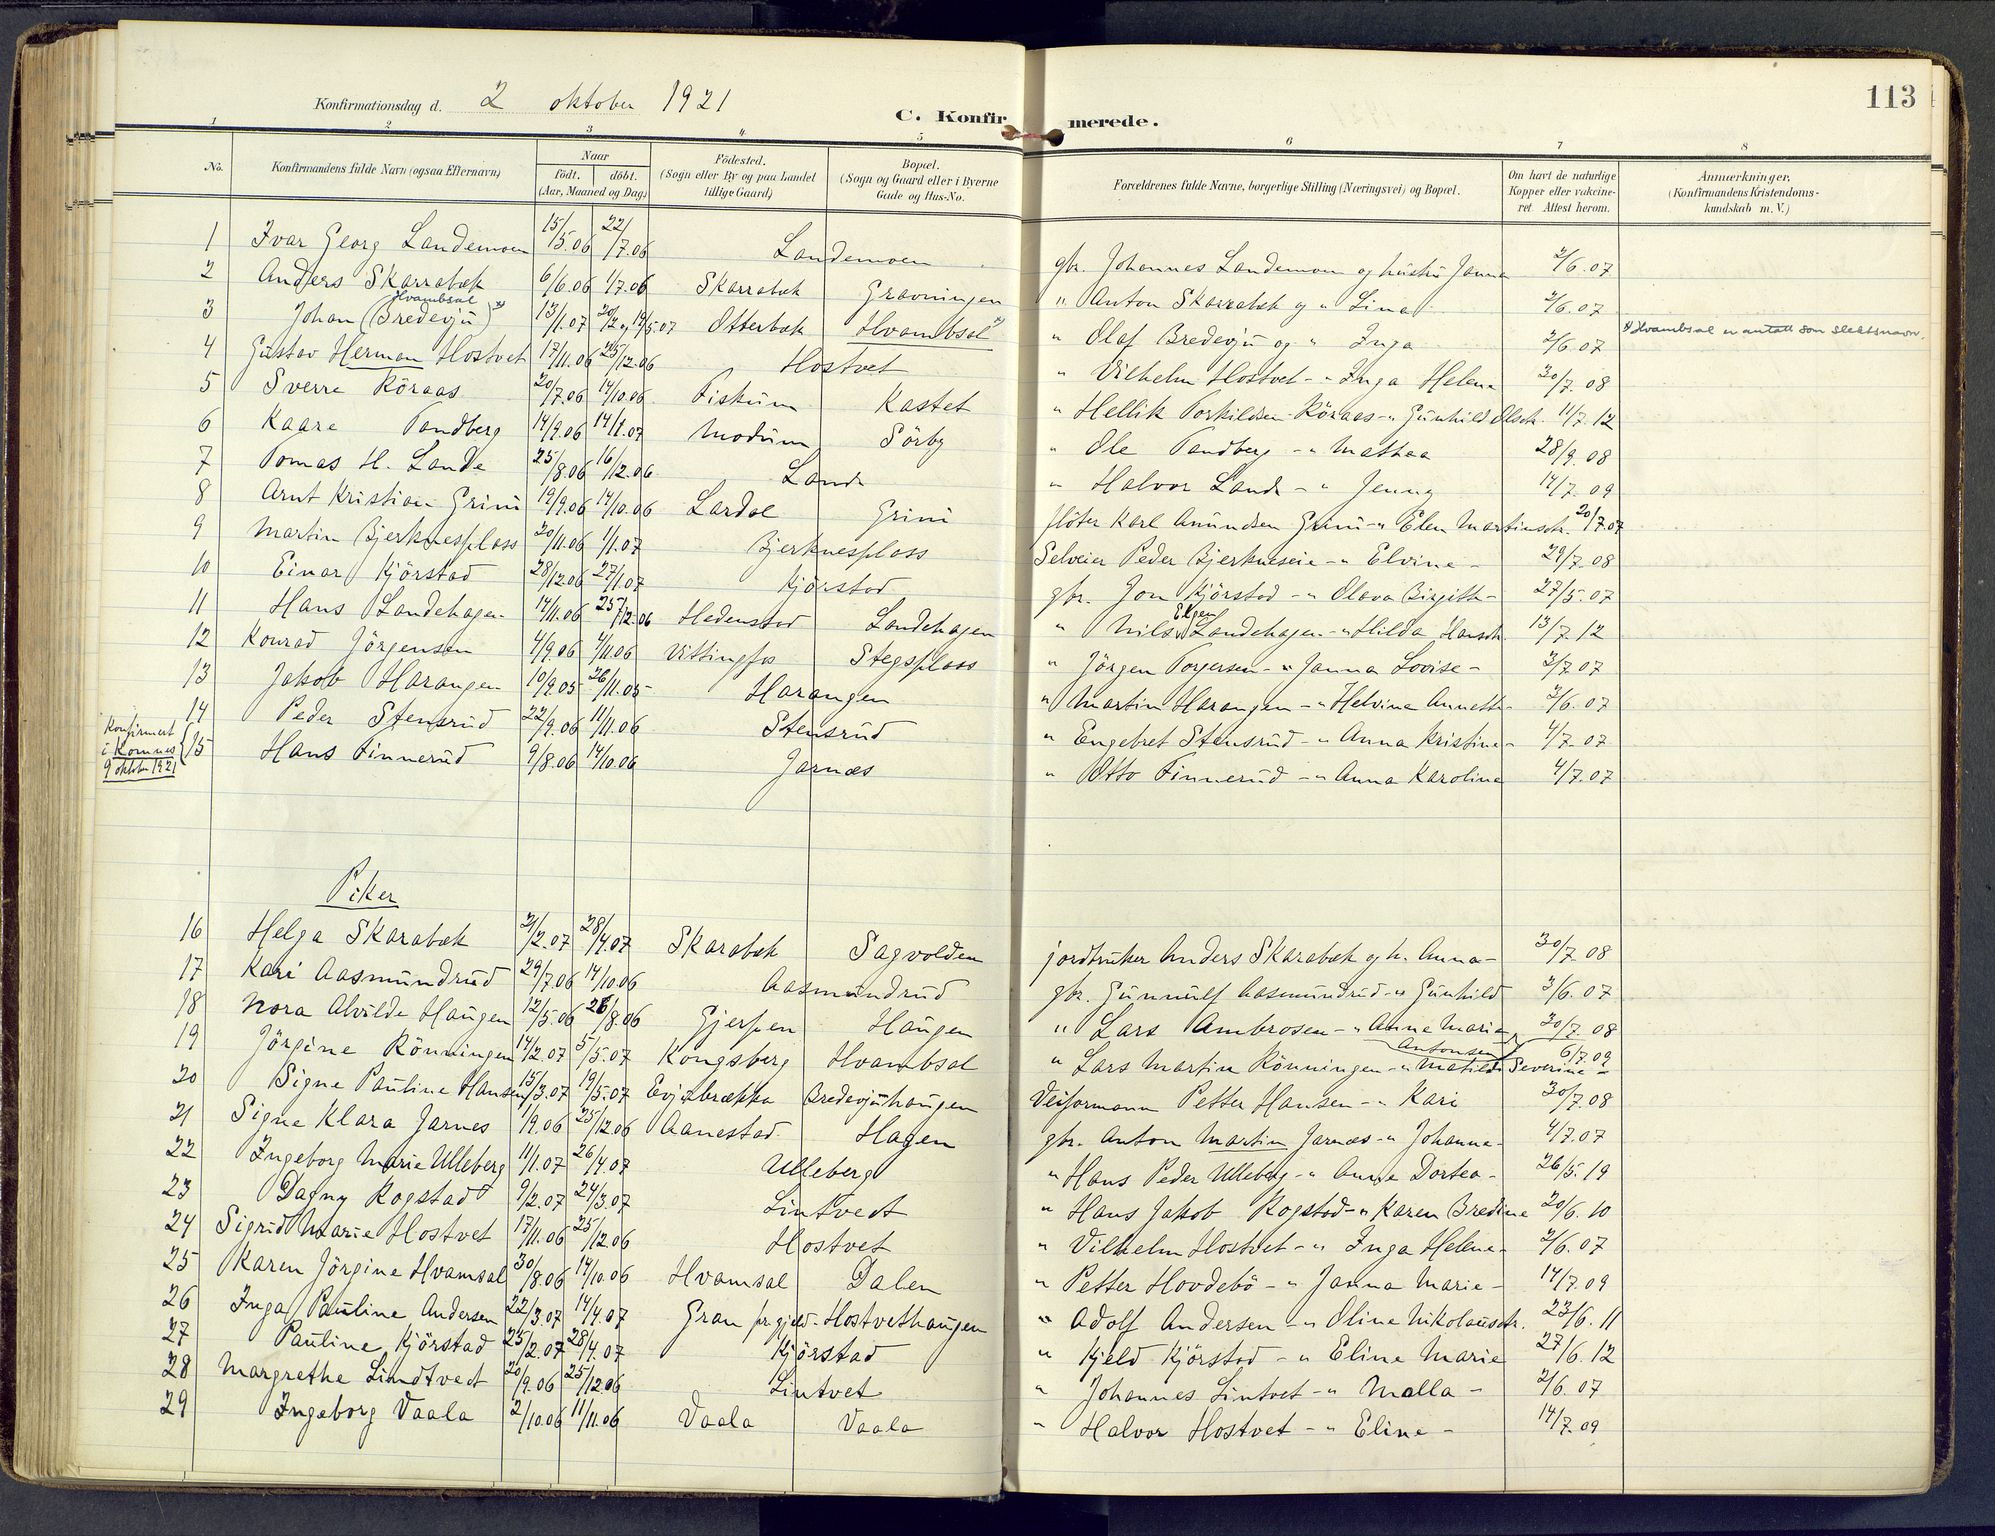 113
Konfirmationsdag d. 2 oktober 1921
C. Konfirmerede.
1 2 3 4 5 6 7 8
No. Konfirmandens fulde Navn (ogsaa Efternavn) Naar født. døbt. (Aar, Maaned og Dag) Fødested. (Sogn eller By og paa Landet tillige Gaard) Bopæl. (Sogn og Gaard eller i Byerne Gade og Hus-No. Forældrenes fulde Navne, borgerlige Stilling (Næringsvei) og Bopæl. Om havt de naturlige Kopper eller vakcineret Attest herom. Anmærkninger. (Konfirmandens Kristendomskundskab m. V.)
1 Ivar Georg Landemoen 15/5.06 22/7.06 Landemoen gbr. Johannes Landemoen og hustru Janna 2/6.07
2 Anders Skarrabæk 6/6.06 1/7.06 Skarrabæk Gravningen " Anton Skarrabæk og " Lina 2/6.07
3 Johan (Bredevju) Hvambsal x) 13/1.07 20/2 19/5.07 Otterbæk Hvambsal x) " Olaf Bredevju og " Inga 2/6.07 x) Hvambsal er antatt som slektsnavn.
4 Gustav Herman Hostvet 17/11.06 25/12.06 Hostvet " Vilhelm Hostvet - " Inga Helene 30/7.08
5 Sverre Röraas 20/7.06 14/10.06 Fiskum Kastet " Hellik Torkildsen Röraas - " Gunhild Olsdtr. 11/7.12
6 Kaare Tandberg 14/9.06 14/1.07 Modum Sörby " Ole Tandberg - " Mathea 28/9.08
7 Tomas H. Lande 25/8.06 16/12.06 Lande " Halvor Lande - " Jenny 14/7.09
8 Arnt Kristian Grini 19/9.06 14/10.06 Lardal Grini fløter Karl Amundsen Grini - " Elen Martinsdtr. 20/7.07
9 Martin Bjerknesplass 20/11.06 1/1.07 Bjerknesplass Selveier Peder Bjerkneseie - " Elvine - 29/7.08
10 Einar Kjörstad 28/12.06 27/1.07 Kjörstad gbr. Jon Kjörstad - " Olava Birgitte - 27/5.07
11 Hans Landehagen 14/11.06 25/12.06 Hedenstad Landehagen " Nils Landehagen - " Hilda Hansdtr. 13/7.12
12 Konrad Jörgensen 4/9.06 4/11.06 Vittingfos Stegsplass " Jörgen Torjersen - " Janna Lovise - 3/7.07
13 Jakob Harangen 10/9.05 26/11.05 Harangen " Martin Harangen - " Helvine Annette 2/6.07
14 Peder Stensrud 22/9.06 11/11.06 Stensrud " Engebret Stensrud - " Anna Kristine - 4/7.07
Konfirmert i Komnes 9 oktober 1921 { 15 Hans Finnerud 9/8.06 14/10.06 Jarnæs " Otto Finnerud - " Anna Karoline 4/7.07
Piker
16 Helga Skarabæk 21/2.07 28/4.07 Skarabæk Sagvolden jordbruker Anders Skarabæk og h. Anna - 30/7.08
17 Kari Aasmundrud 29/7.06 14/10.06 Aasmundrud gbr. Gunnulf Aasmundrud - " Gunhild 3/6.07
18 Nora Alvilde Haugen 12/5.06 26/8.06 Gjerpen Haugen " Lars Ambrosen - " Anne Marie Antonsen 30/7.08
19 Jörgine Rönningen 14/2.07 5/5.07 Kongsberg Hvambsal " Lars Martin Rönningen - " Matilde Severine - 6/7.09
20 Signe Pauline Hansen 15/3.07 19/5.07 Evjubrækka Bredevjuhaugen Veiformann Petter Hansen - " Kari 30/7.08
21 Signe Klara Jarnes 1/9.06 25/12.06 Aanestad Hagen gbr. Anton Martin Jarnæs - " Johanne - 4/7.07
22 Ingeborg Marie Ulleberg 11/1.07 26/4.07 Ulleberg " Hans Peder Ulleberg - " Anne Dortea - 26/5.19
23 Dagny Rogstad 9/2.07 24/3.07 Lintvedt " Hans Jakob Rogstad - " Karen Bredine 20/6.10
24 Sigrid Marie Hostvet 17/11.06 25/12.06 Hostvet " Vilhelm Hostvet - " Inga Helene - 2/6.07
25 Karen Jörgine Hvamsal 30/8.06 14/10.06 Hvamsal Dalen " Petter Hovdebö - " Janna Marie - 14/7.09
26 Inga Pauline Andersen 22/3.07 14/4.07 Gran pr.gjeld - Hostvethaugen " Adolf Andersen - " Oline Nikolausdtr. 23/6.11
27 Pauline Kjörstad 25/2.07 28/4.07 Kjörstad " Kjeld Kjörstad - " Eline Marie 27/6.12
28 Margrethe Lindtvedt 20/9.06 25/12.06 Lintvet " Johannes Lintvet - " Malla - 2/6.07
29 Ingeborg Vaala 2/10.06 11/11.06 Vaala Vaala " Halvor Hostvet - " Eline - 14/7.09